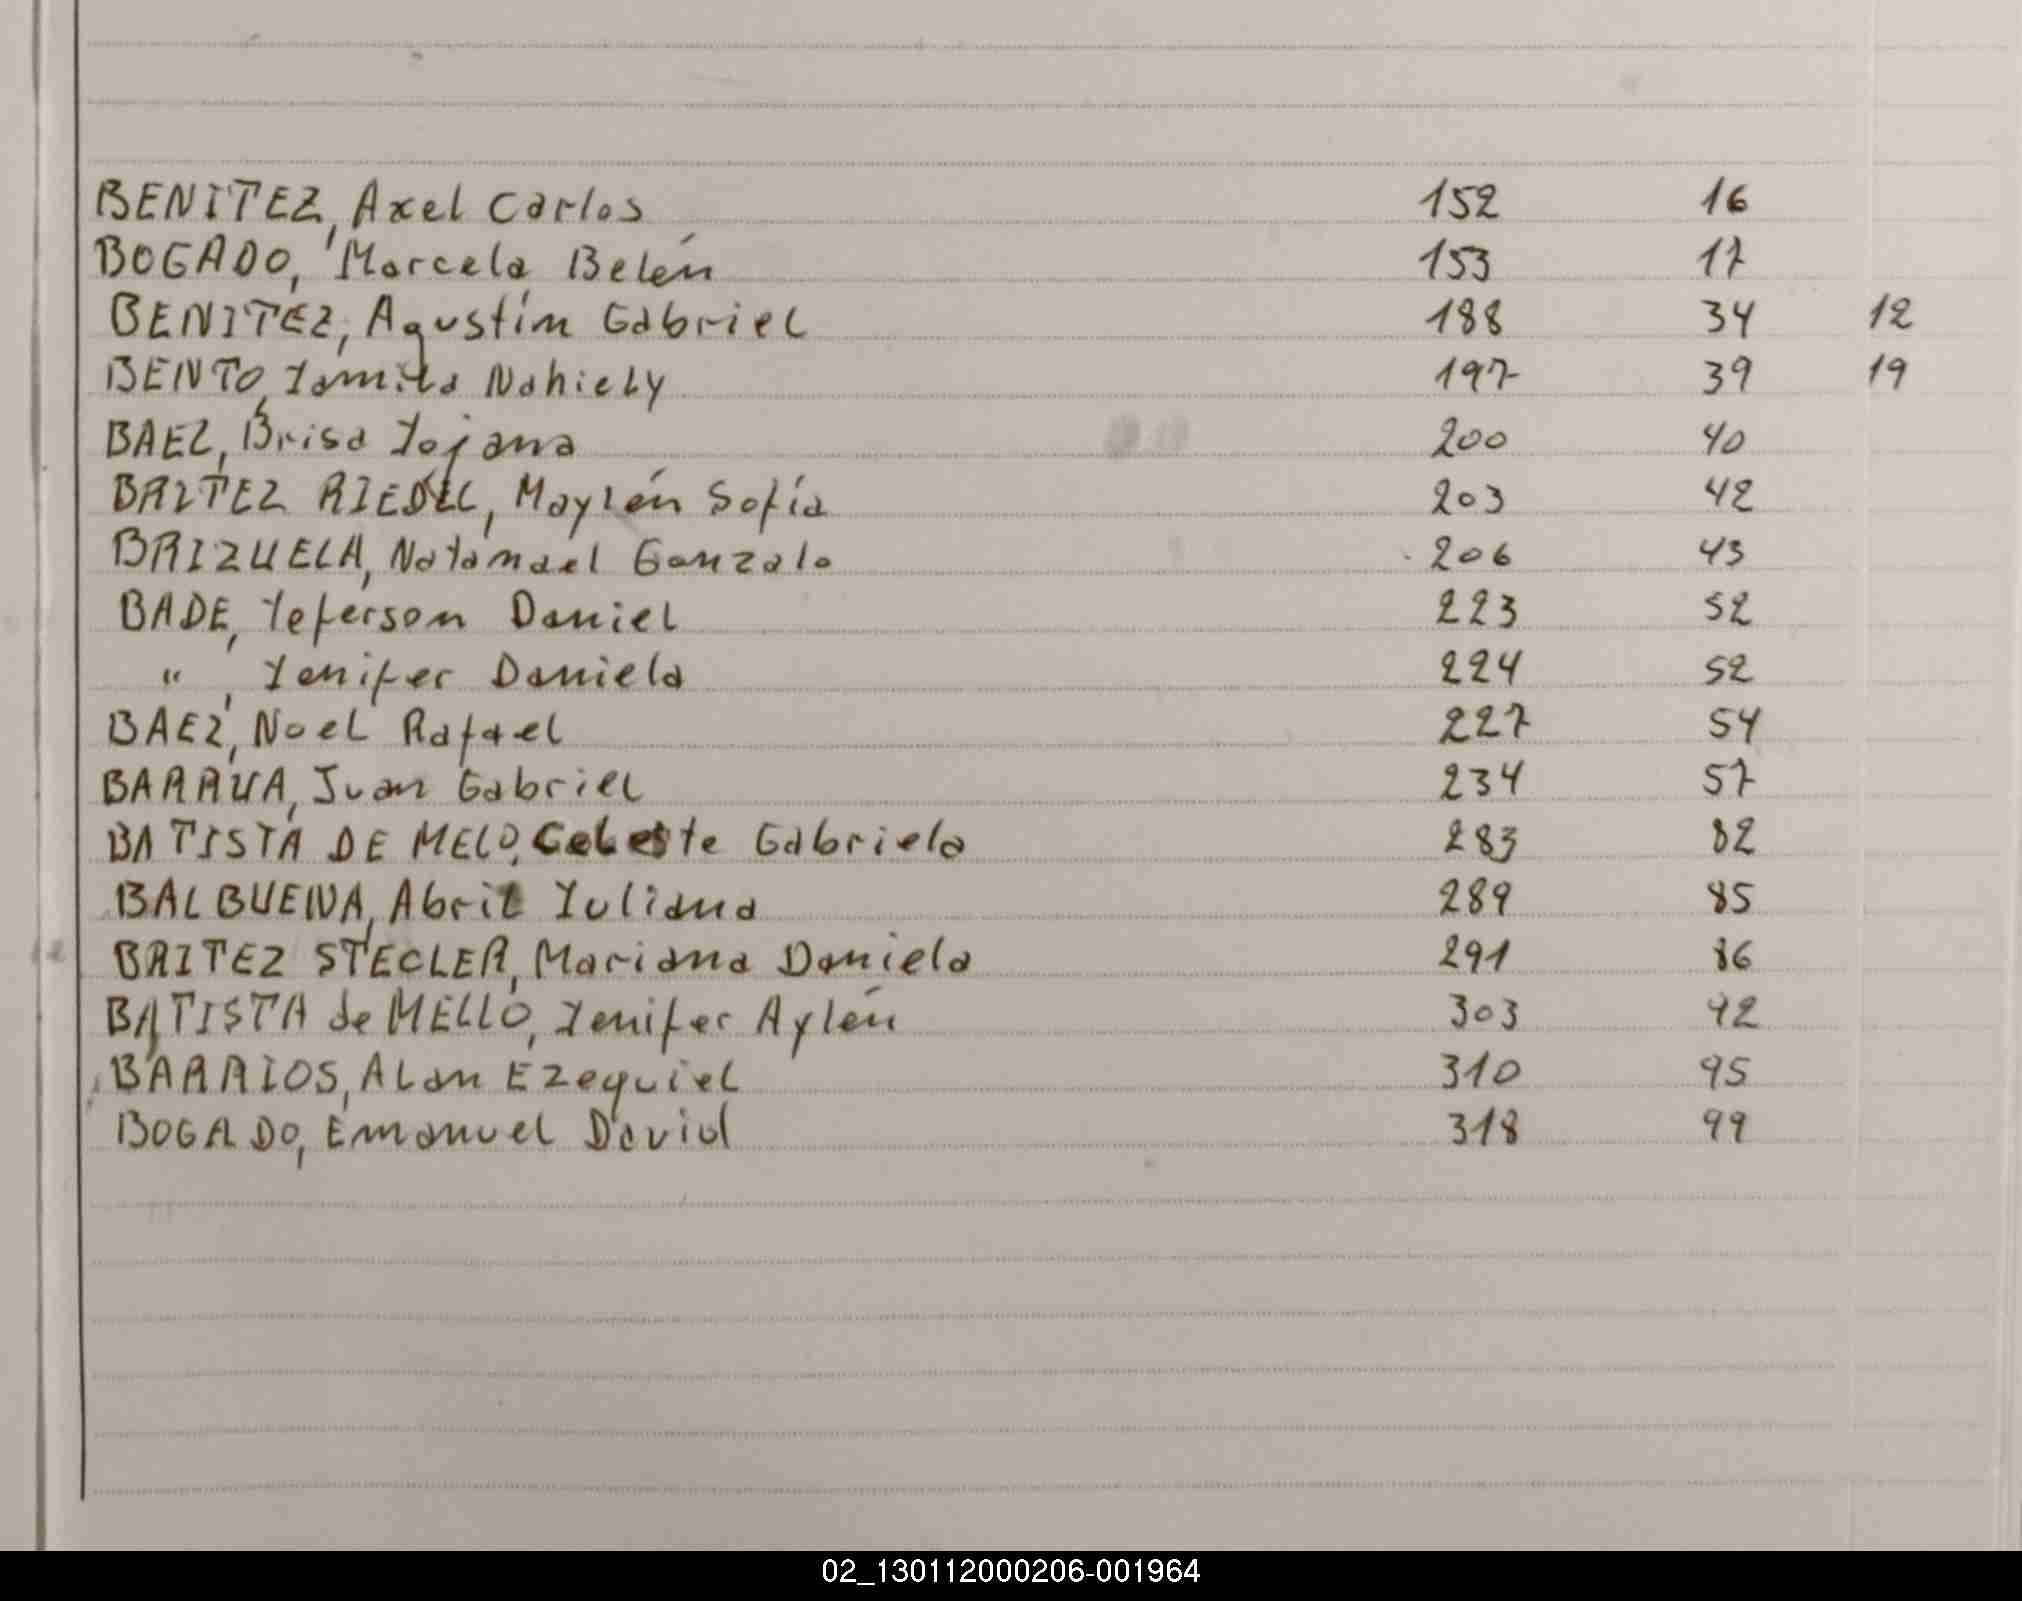 BENITEZ, Axel Carlos 152 16
BOGADO, Marcela Belén 153 17
BENITEZ, Agustín Gabriel 188 34 12
BENTO, Yamila Nahiely 197 39 19
BAEZ, Brisa Yojana 200 40
BRITEZ RIEDEL, Maylén Sofía 203 42
BRIZUELA, Natanael Gonzalo 206 43
BADE, Yeferson Daniel 223 52
" , Yenifer Daniela 224 52
BAEZ, Noel Rafael 227 54
BARRUA, Juan Gabriel 234 57
BATISTA DE MELO, Celeste Gabriela 283 82
BALBUENA, Abril Yuliana 289 85
BRITEZ STECLER, Mariana Daniela 291 86
BATISTA de MELLO, Yenifer Aylén 303 92
BARRIOS, Alan Ezequiel 310 95
BOGADO, Emanuel David 318 99
02_130112000206-001964